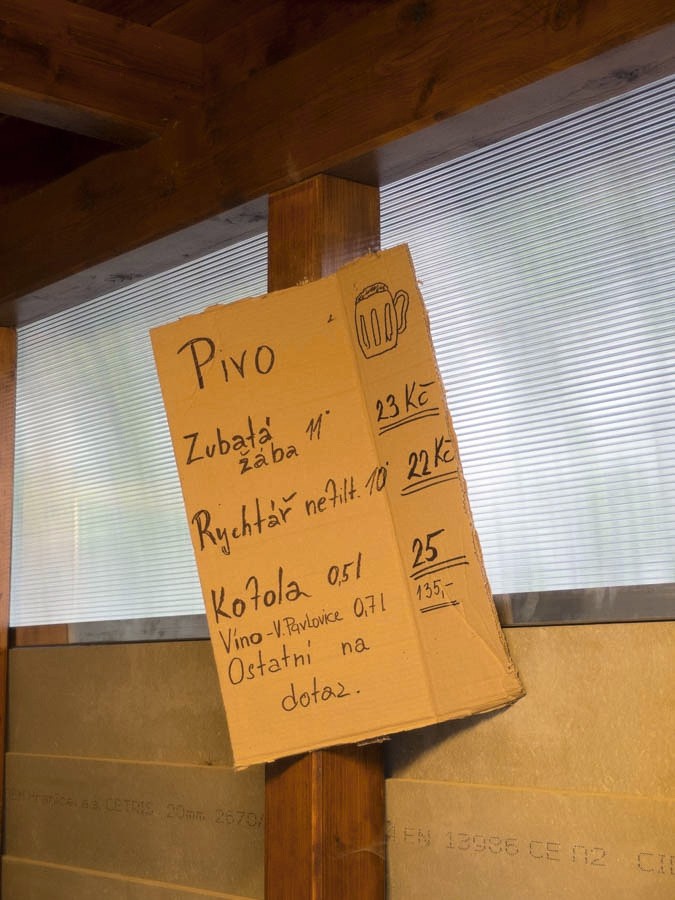 Pivo
Zubatá 11° 23 Kč
žába
Rychtář nefilt. 10° 22 Kč
Kofola 0,5l 25
Víno - V. Pavlovice 0,7l 135,-
Ostatní na
dotaz.
CETRIS 20mm
EN 13986 CE A2